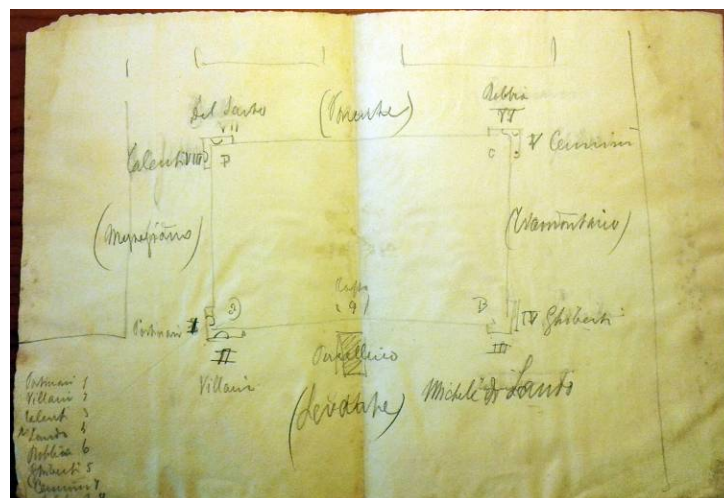 Del Sarto
VII
(Ponente)
Robbia
VI
Talenti VIII
P
C
V Cennini
(Mezzogiorno)
(Tramontano)
Portinari I
B
IV Ghiberti
II
III
Villani
Porcellino
Michele di Lando
(Levante)
Portinari 1
Villani 2
Talenti 3
Lando 4
Robbia 6
Ghiberti 5
Cennini 7